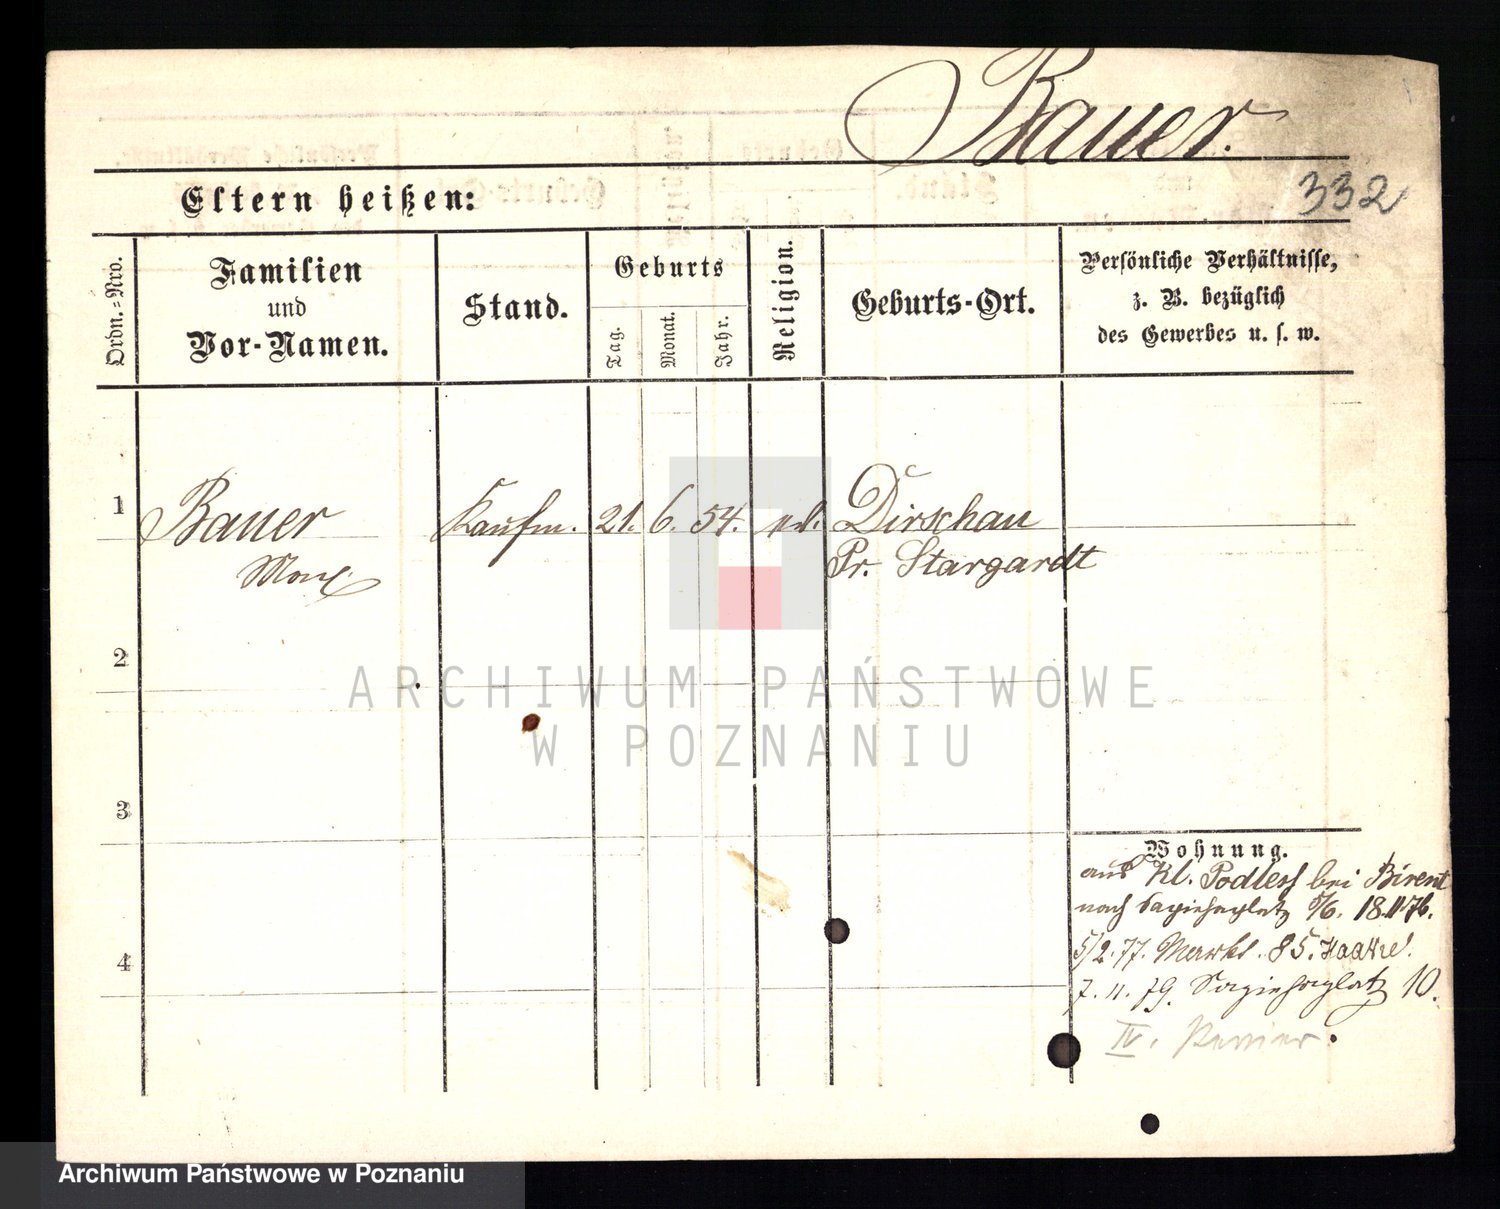 Bauer.
332
Eltern heißen:
Ordn.=Nro.
Familien
und
Vor-Namen.
Stand.
Geburts
Tag.
Monat.
Jahr.
Religion.
Geburts-Ort.
Persönliche Verhältnisse,
z. B. bezüglich
des Gewerbes u. s. w.
1 Bauer Kaufm. 21. 6. 54. Dirschau
Max Pr. Stargardt
2
3
4
Wohnung.
aus Kl. Podless bei Birent
nach Sapiehaplatz 18.11.76.
5/2.77. Markt. 85.
7. 11. 79. Sapiehaplatz 10.
IV.
ARCHIWUM PAŃSTWOWE
W POZNANIU
Archiwum Państwowe w Poznaniu